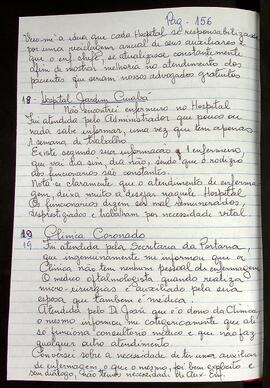 Pag - 156
Veio-me a ideia que cada Hospital se responsabilizasse
por uma reciclagem anual de seus auxiliares e
que o enf. chefe, se atualizasse constantemente
afim de mostrar melhoria no atendimento dos
pacientes que seriam nossos advogados gratuitos
18 - Hospital Jardim Cuiabá
Não encontrei enfermeiro no Hospital
Fui atendida pelo Administrador que pouco ou
nada sabe informar, uma vez que tem apenas
1 semana de trabalho.
Existe segundo sua informação 1 enfermeiro,
que vai dia sim, dia não, sendo que o rodízio
dos funcionários são constantes.
Nota se claramente que o atendimento de enferma-
gem, deixa muito a desejar naquele Hospital.
Os funcionários dizem ser mal remunerados,
desprestigiados e trabalham por necessidade vital
19 Clínica Coronado
19 Fui atendida pela Secretaria da Portaria,
que ingenuamente me informou que a
Clínica não tem nenhum pessoal de enfermagem
O médico oftalmologista quando realiza
micro-cirurgias é auxiliado pela sua
esposa que também é médica.
Atendida pelo Dr José que é o dono da Clínica,
o mesmo informou me categoricamente que ali
só funciona consultório médico e que não faz
qualquer outro atendimento.
Conversei sobre a necessidade de ter uma auxiliar
de enfermagem, o que o mesmo, foi bem explícito e
sem diálogo, não temos necessidade de Aux. Enf.